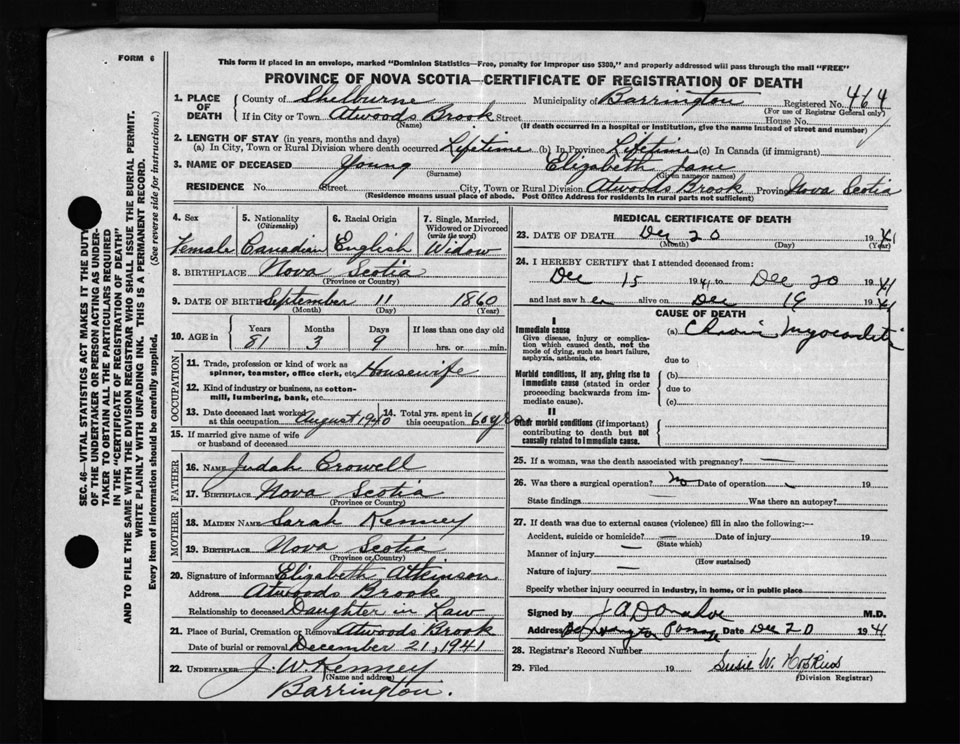 FORM 6
This form if placed in an envelope, marked "Dominion Statistics—Free, penalty for improper use $300," and properly addressed will pass through the mail "FREE"
PROVINCE OF NOVA SCOTIA—CERTIFICATE OF REGISTRATION OF DEATH
SEC. 46—VITAL STATISTICS ACT MAKES IT THE DUTY
OF THE UNDERTAKER OR PERSON ACTING AS UNDER-
TAKER TO OBTAIN ALL THE PARTICULARS REQUIRED
IN THE "CERTIFICATE OF REGISTRATION OF DEATH"
AND TO FILE THE SAME WITH THE DIVISION REGISTRAR WHO SHALL ISSUE THE BURIAL PERMIT.
WRITE PLAINLY WITH UNFADING INK. THIS IS A PERMANENT RECORD.
Every item of information should be carefully supplied. (See reverse side for instructions.)
1. PLACE OF DEATH
County of Shelburne Municipality of Barrington Registered No. 464
(For use of Registrar General only)
If in City or Town Atwoods Brook Street House No.
(Name) (If death occurred in a hospital or institution, give the name instead of street and number)
2. LENGTH OF STAY (in years, months and days)
(a) In City, Town or Rural Division where death occurred Lifetime (b) In Province Lifetime (c) In Canada (if immigrant)
3. NAME OF DECEASED Young Elizabeth Jane
(Surname) (Given name or names)
RESIDENCE No. Street City, Town or Rural Division Atwoods Brook Province Nova Scotia
(Residence means usual place of abode. Post Office Address for residents in rural parts not sufficient)
4. Sex
Female
5. Nationality
(Citizenship)
Canadian
6. Racial Origin
English
7. Single, Married,
Widowed or Divorced
(write the word)
Widow
8. BIRTHPLACE Nova Scotia
(Province or Country)
9. DATE OF BIRTH September 11 1860
(Month) (Day) (Year)
10. AGE in Years Months Days If less than one day old
81 3 9 hrs. or min.
OCCUPATION
11. Trade, profession or kind of work as
spinner, teamster, office clerk, etc. Housewife
12. Kind of industry or business, as cotton-
mill, lumbering, bank, etc.
13. Date deceased last worked
at this occupation August 1940
14. Total yrs. spent in
this occupation 60 yrs
15. If married give name of wife
or husband of deceased
FATHER
16. NAME Judah Crowell
17. BIRTHPLACE Nova Scotia
(Province or Country)
MOTHER
18. MAIDEN NAME Sarah Kenney
19. BIRTHPLACE Nova Scotia
(Province or Country)
20. Signature of informant Elizabeth Atkinson
Address Atwoods Brook
Relationship to deceased Daughter in Law
21. Place of Burial, Cremation or Removal Atwoods Brook
Date of burial or removal December 21, 1941
22. UNDERTAKER J. W. Kenney
(Name and address)
Barrington.
MEDICAL CERTIFICATE OF DEATH
23. DATE OF DEATH Dec 20 1941
(Month) (Day) (Year)
24. I HEREBY CERTIFY that I attended deceased from:
Dec 15 1941 to Dec 20 1941
and last saw her alive on Dec 19 1941
CAUSE OF DEATH
I
Immediate cause
Give disease, injury or complica-
tion which caused death, not the
mode of dying, such as heart failure,
asphyxia, asthenia, etc.
(a) Chronic Myocarditis
due to
Morbid conditions, if any, giving rise to
immediate cause (stated in order
proceeding backwards from im-
mediate cause).
(b)
due to
(c)
II
Other morbid conditions (if important)
contributing to death but not
causally related to immediate cause.
25. If a woman, was the death associated with pregnancy?
26. Was there a surgical operation? no Date of operation 19
State findings Was there an autopsy?
27. If death was due to external causes (violence) fill in also the following:—
Accident, suicide or homicide? Date of injury 19
(State which)
Manner of injury
(How sustained)
Nature of injury
Specify whether injury occurred in industry, in home, or in public place
Signed by J A Donahoe M.D.
Address Barrington Passage Date Dec 20 1941
28. Registrar's Record Number
29. Filed 19 Susie W. Hopkins
(Division Registrar)